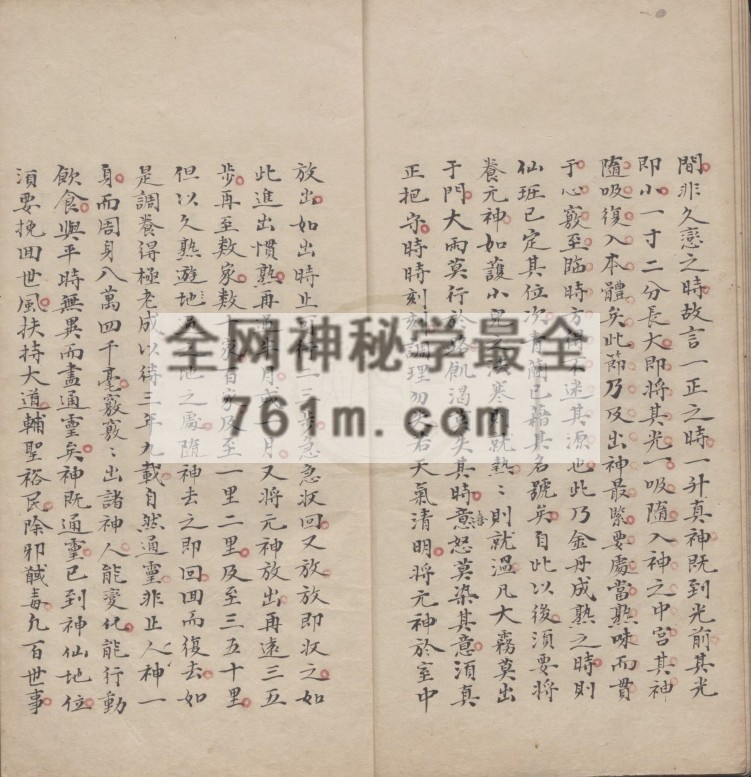 間非久戀之時故言一正之時一升真神既到光前其光
即小一寸二分長大即將其光一吸隨入神之中宮其神
隨吸復入本體矣此節乃及出神最緊要處當熟味而貫
于心竅至臨時方不迷其源也此乃金丹成熟之時則
仙班已定其位次已其名號矣自此以後須要將
養元神如護小寒就熱〻則就溫凡大霧莫出
于門大雨莫行於路飢渴莫失其時喜怒莫染其意須真
正把守時時刻刻調理勿天氣清明將元神於室中
放出如出時止可一二步急急收回又放放即收之如
此進出慣熟再月又將元神放出再遠三五
步再至数家数十家百步及至一里二里及至三五十里
但以久熟遊地之處隨神去之即回回而復去如
是調養得極老成以待三年九載自然通靈非止人神一
身而周身八萬四千毫竅竅〻出諸神人能變化能行動
飲食與平時無異而盡通靈矣神既通靈已到神仙地位
須要挽回世風扶持大道輔聖裕民除邪馘毒凡百世事
全网神秘学最全
761m.com